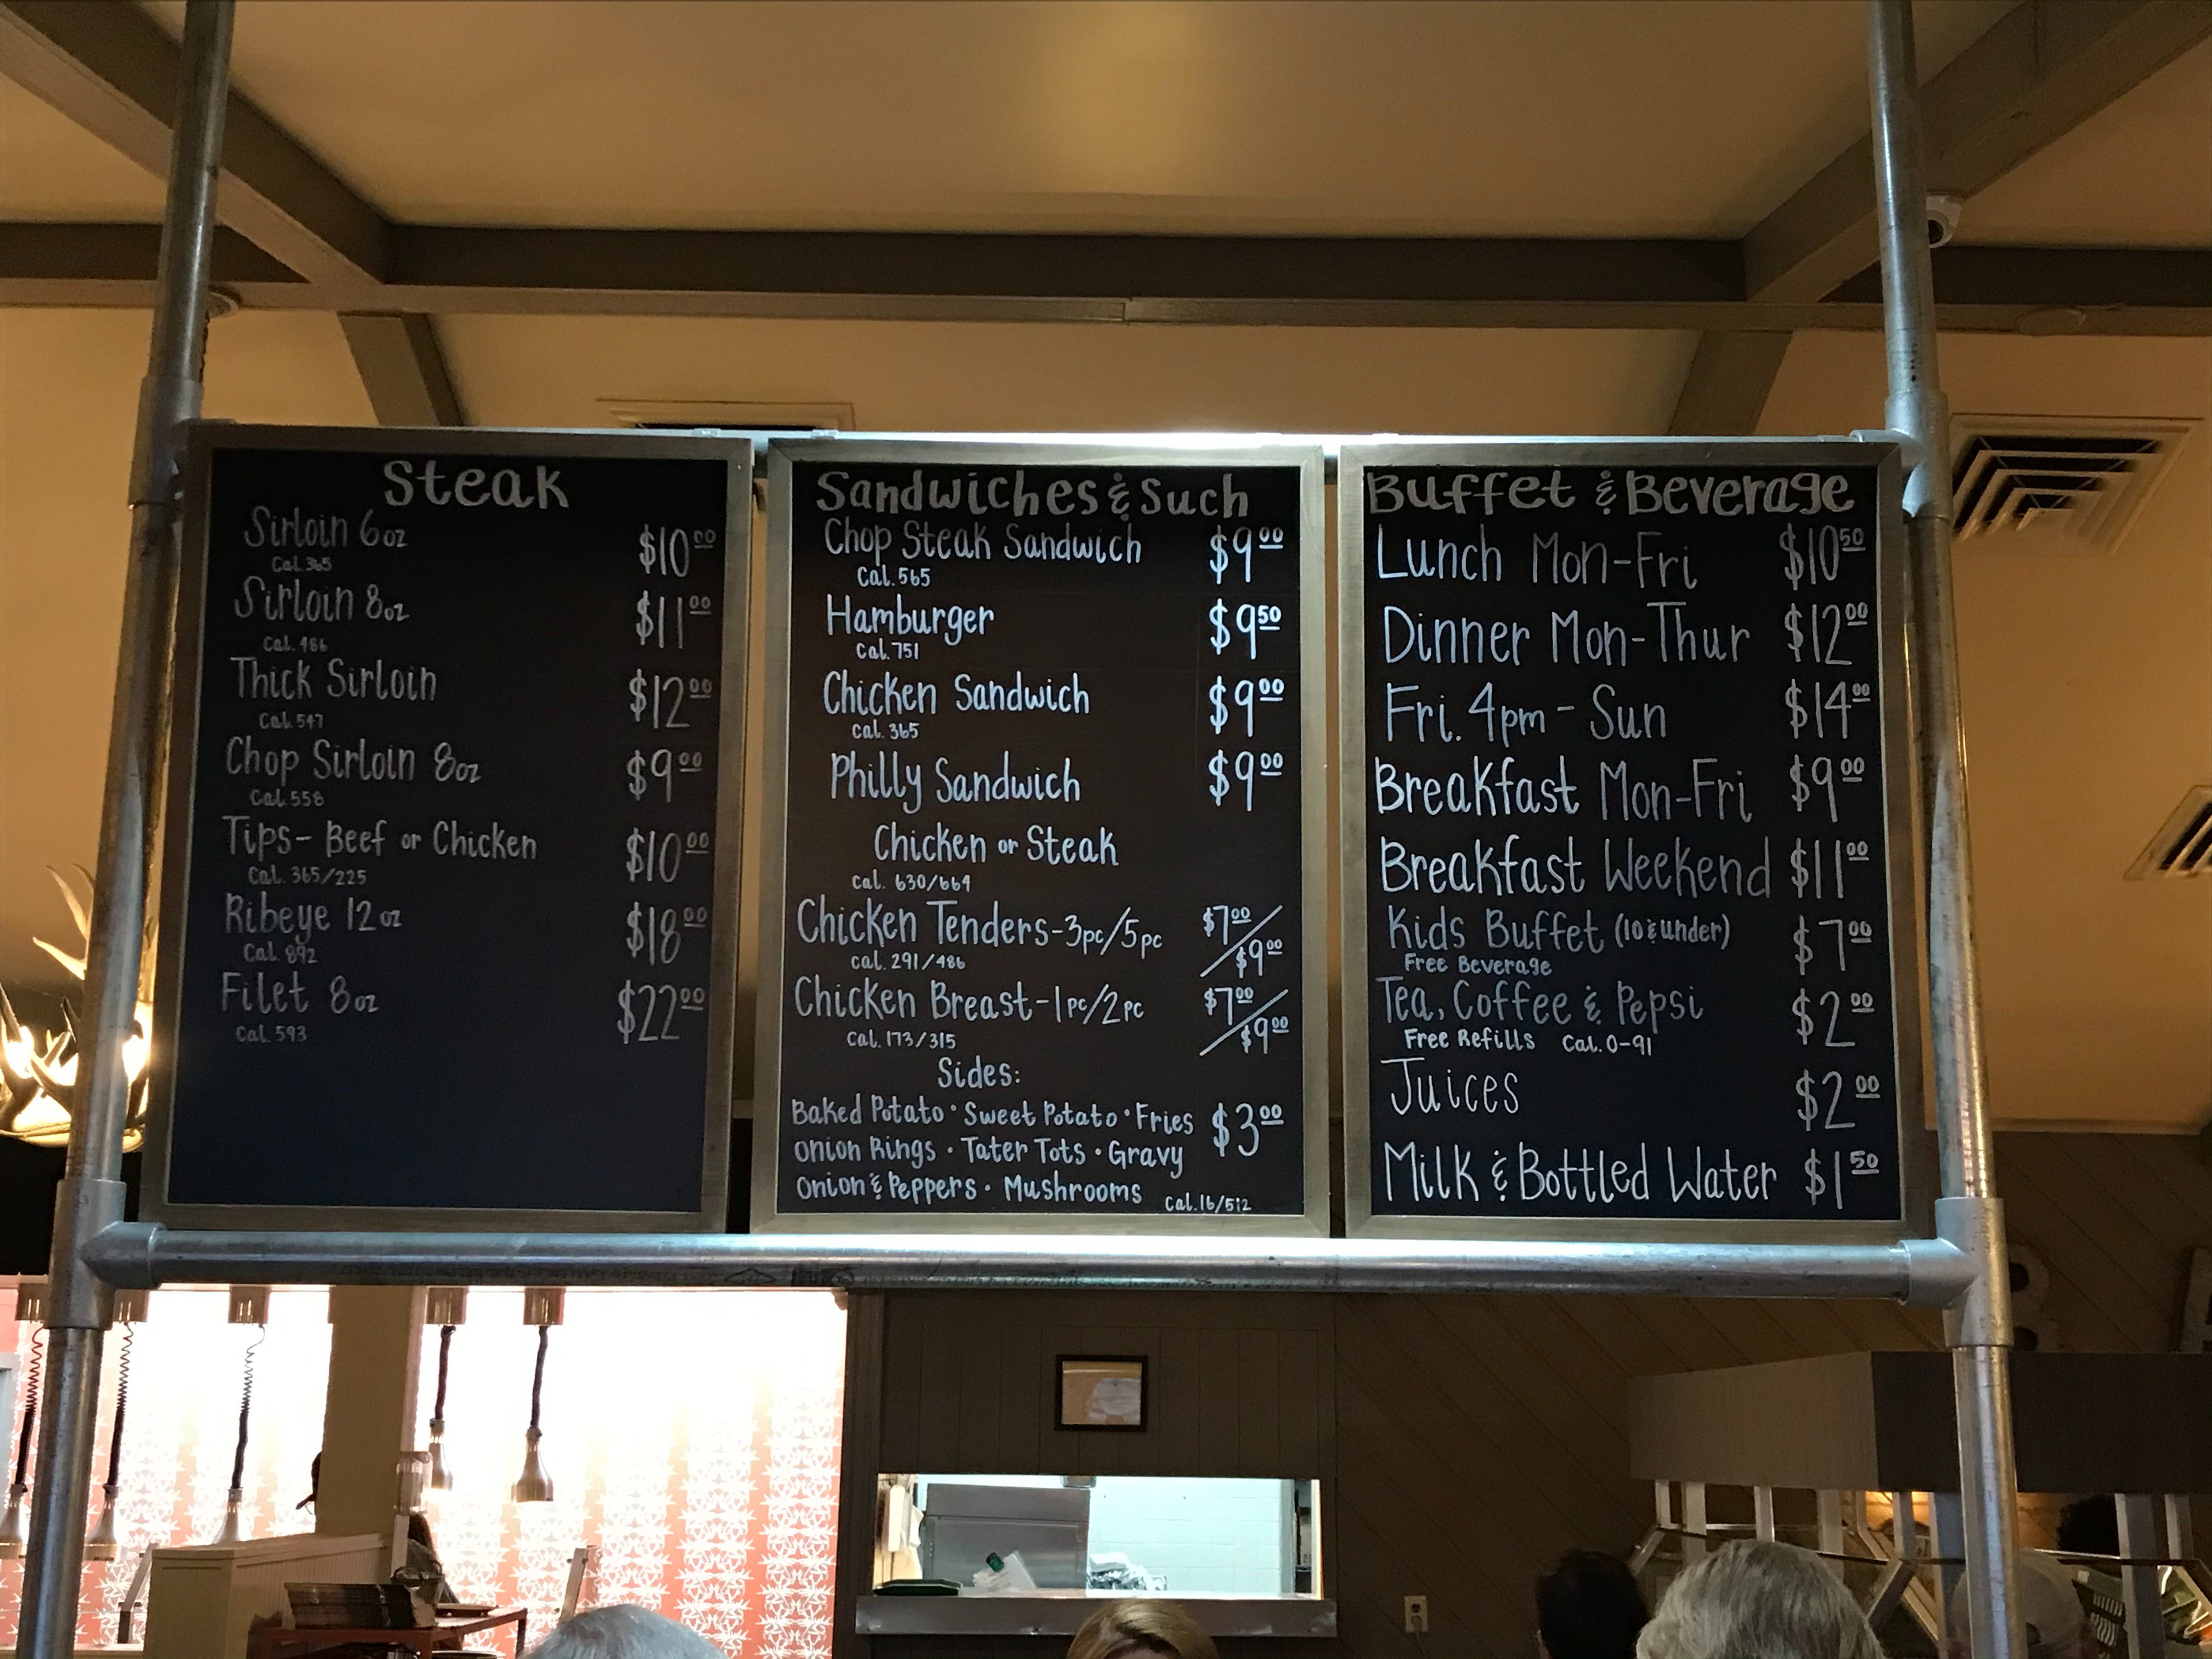 Steak
Sirloin 6oz $10.00
Cal. 365
Sirloin 8oz $11.00
Cal. 486
Thick Sirloin $12.00
Cal. 547
Chop Sirloin 8oz $9.00
Cal. 558
Tips- Beef or Chicken $10.00
Cal. 365/225
Ribeye 12oz $18.00
Cal. 892
Filet 8oz $22.00
Cal. 593
Sandwiches & Such
Chop Steak Sandwich $9.00
Cal. 565
Hamburger $9.50
Cal. 751
Chicken Sandwich $9.00
Cal. 365
Philly Sandwich $9.00
Chicken or Steak
Cal. 630/664
Chicken Tenders-3pc/5pc $7.00/$9.00
Cal. 291/486
Chicken Breast-1pc/2pc $7.00/$9.00
Cal. 173/315
Sides:
Baked Potato • Sweet Potato • Fries $3.00
Onion Rings • Tater Tots • Gravy
Onion & Peppers • Mushrooms Cal. 16/512
Buffet & Beverage
Lunch Mon-Fri $10.50
Dinner Mon-Thur $12.00
Fri. 4pm - Sun $14.00
Breakfast Mon-Fri $9.00
Breakfast Weekend $11.00
Kids Buffet (10 & under) $7.00
Free Beverage
Tea, Coffee & Pepsi $2.00
Free Refills Cal. 0-91
Juices $2.00
Milk & Bottled Water $1.50